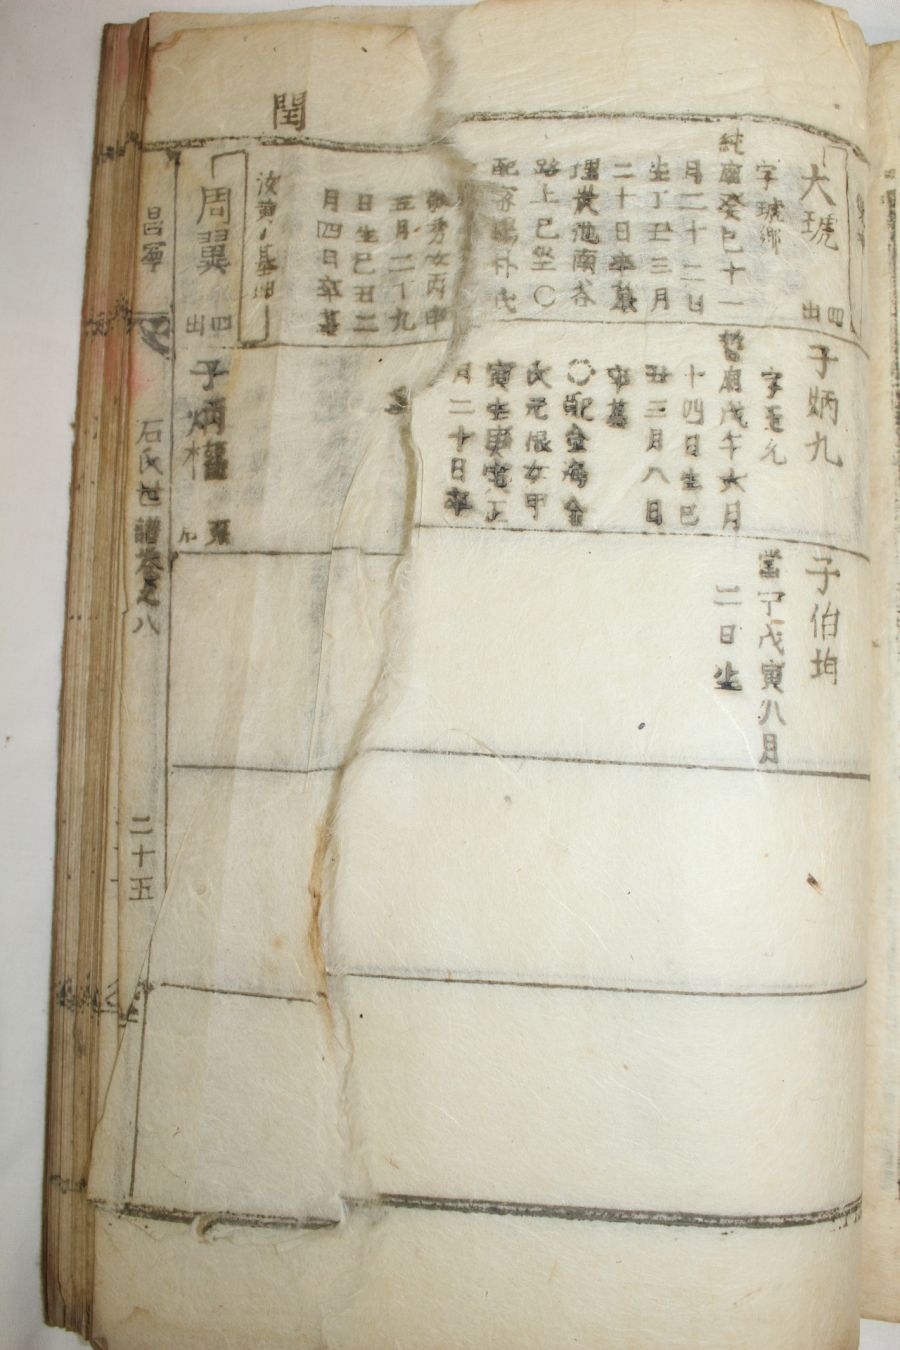 閏
大琥 四出
字琥卿
純廟癸巳十一
月二十二日
生丁丑三月
二十日卒墓
路上巳坐〇
配密陽朴氏
女丙申
五月二十九
日生巳丑二
月四日卒墓
周翼 四出
子炳九
字玉允
哲廟戊午六月
十四日生巳
丑三月八日
卒墓
〇配金海金
氏元俊女甲
寅生庚寅正
月二十日卒
墓
子炳權
子伯均
當宁戊寅八月
二日生
昌寧
石氏世譜卷之八
二十五